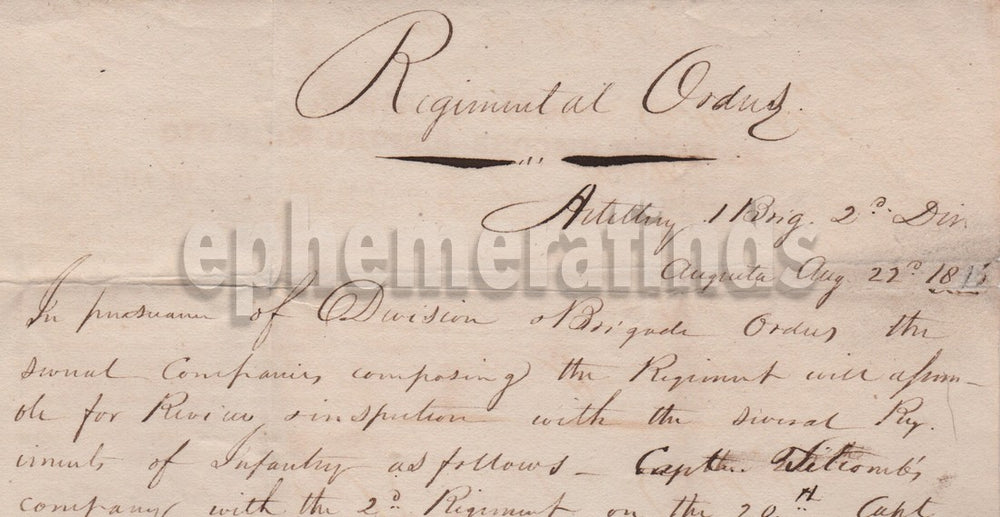 Regimental Orders.
Artillery 1 Brig. 2d. Div
ephemerafinds
Augusta Aug 22d. 18
In pursuance of Division & Brigade Orders the
several Companies composing the Regiment will assem-
ble for Review & inspection with the several Reg.
iments of Infantry as follows - Captn. Titcomb's
company with the 2d. Regiment on the 20th Capt